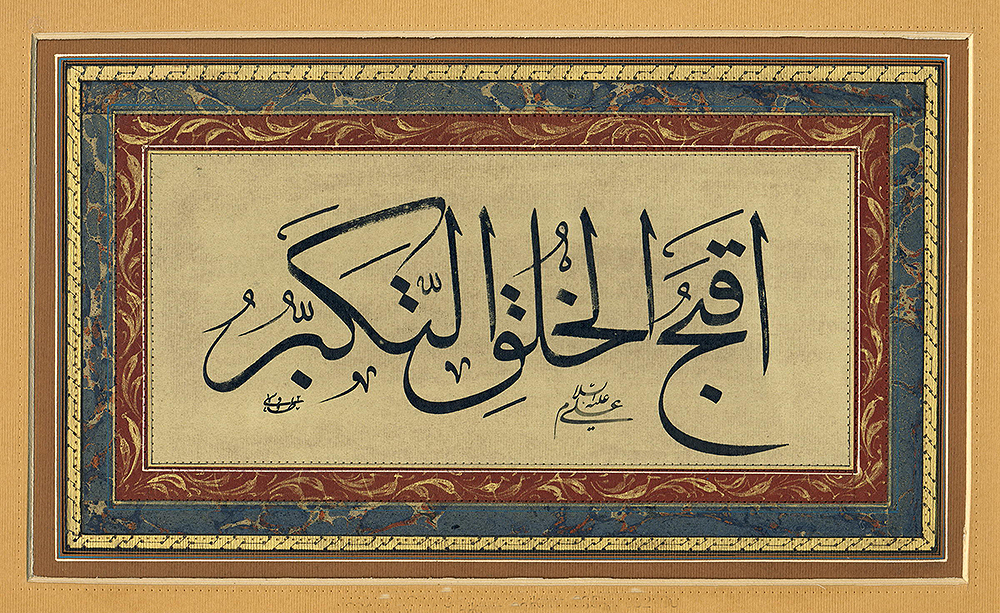 اقبَحُ الخُلُقِ التَّكَبُّرُ
علي عليه السلام